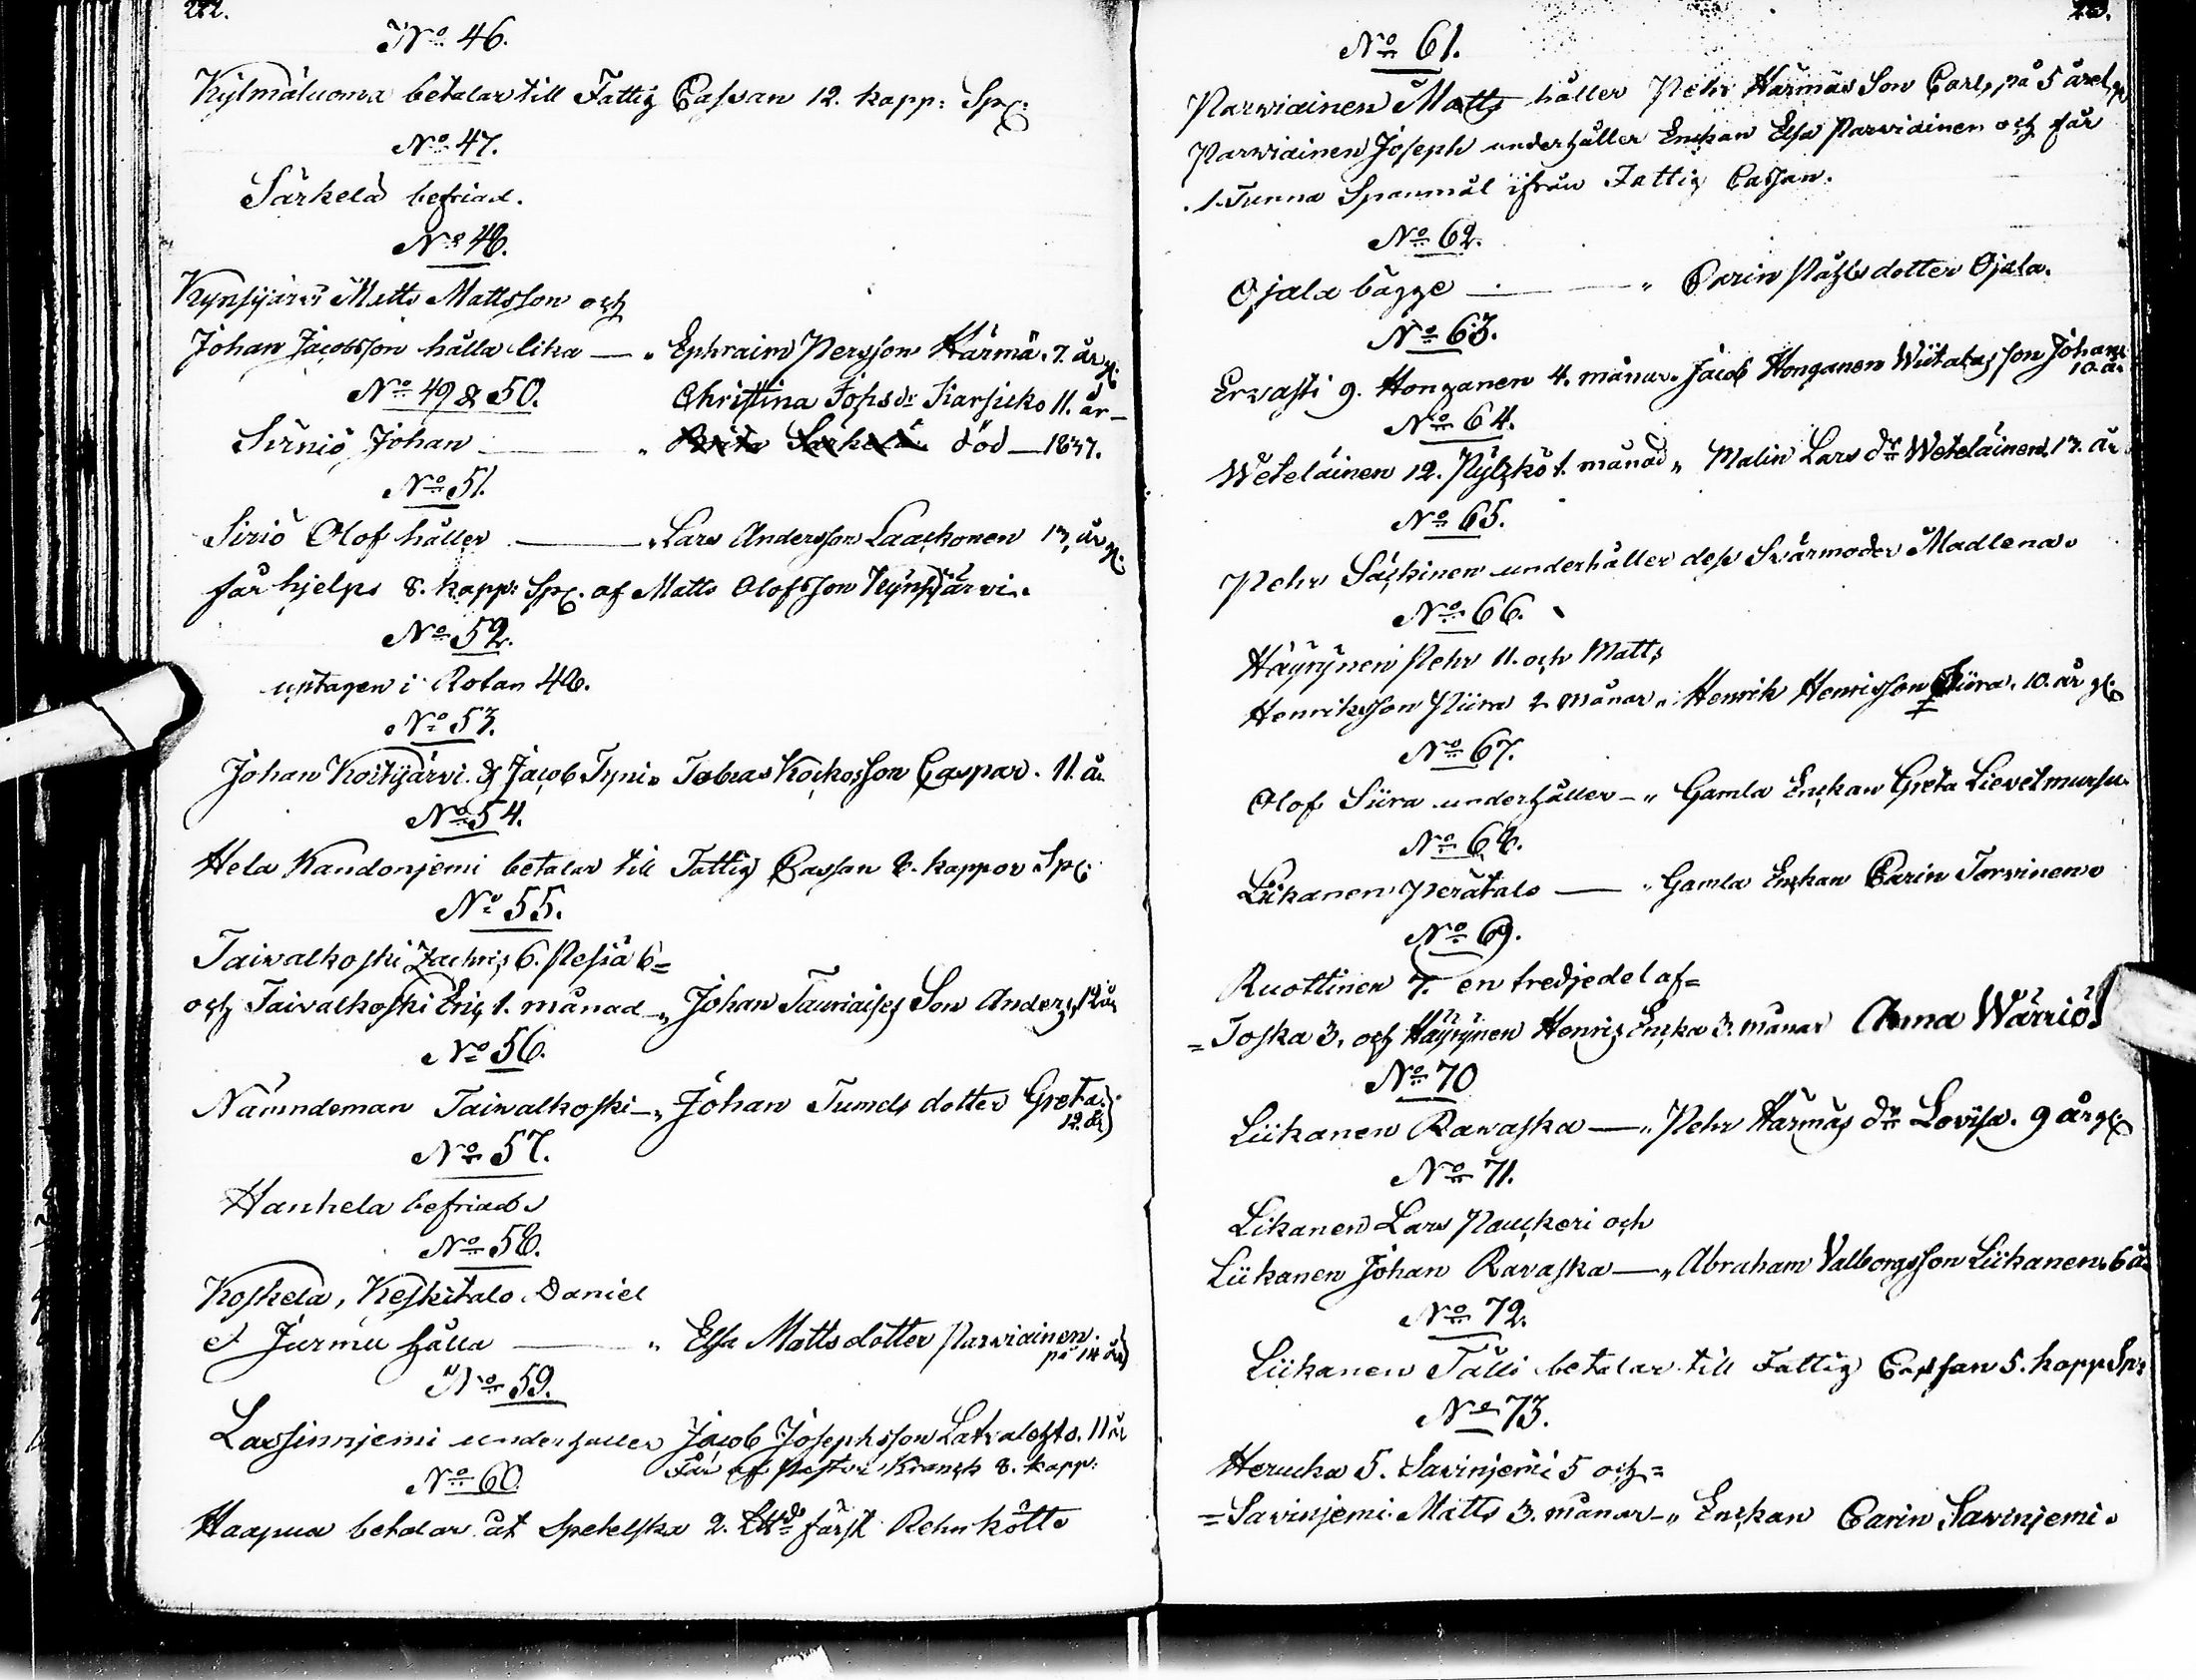 222.
No 46.
Kylmäluoma betalar till Fattig Cassan 12. kapp: Sp:
No 47.
Särkelä befriad.
No 48.
Kynsijärvi Matts Mattsson och
Johan Jacobsson hålla lika — " Ephraim Persson Härmä. 7. år gl:
No 49 & 50.
Christina Johsdr Karsicko 11. år —
Sirniö Johan — " Brita Särkelä död — 1837.
No 51.
Siriö Olof håller — " Lars Andersson Laackonen 13, år gl:
får hjelps 8. kapp: Sp: af Matts Olofsson Kynsjärvi.
No 52.
uptagen i Rotan 48.
No 53.
Johan Koitijärvi. & Jacob Tyni " Tobias Kockosson Caspar. 11. år
No 54.
Hela Kandonjemi betalar till Fattig Cassan 8. kappor Sp:
No 55.
Taivalkoski Zachris 6. Pesiä 6 =
och Taivalkoski Eric 1. månad — " Johan Tauriaises Son Anders, 12 år
No 56.
Nämndeman Taivalkoski — " Johan Tumds dotter Greta.
12. år)
No 57.
Hanhela befriad.
No 58.
Koskela, Keskitalo Daniel
et Jurmu hålla — " Elsa Mattsdotter Parviainen.
på 14 år)
No 59.
Larssinnjemi underhåller Jacob Josephsson Latvalehto. 11 år
Får af Pastor Kranck 8. kapp:
No 60.
Haapua betalar åt Spetelska 2. färst Rehn kött.
No 61.
Parviainen Matts håller Pehr Härmäs Son Carl, på 5 året,
Parviainen Joseph underhåller Enckan Elsa Parviainen och får
1. Tunna Spanmål ifrån Fattig Cassan.
No 62.
Ojala bägge — " Carin Påhlsdotter Ojala.
No 63.
Ervasti 9. Honganen 4. månar. Jacob Honganen Wiitalas son Johan.
10. år
No 64.
Weteläinen 12. Pylhkö 1. månad " Malin Lars dr Weteläinen. 13. år
No 65.
Pehr Säckinen underhåller dess Svärmoder Madlena.
No 66.
Häyrynen Pehr 11. och Matts
Henriksson Piira 2 månar " Henrik Henrisson Siira. 10. år gl:
No 67.
Olof Siira underhåller — " Gamla Enckan Greta Lievetmursu.
No 68.
Likanen Perätalo — " Gamla Enckan Carin Torvinen.
No 69.
Ruottinen 7. en tredjedel af =
= Joska 3, och Häyrynen Henrics Encka 3. månar Anna Wärriö
No 70
Liikanen Ravaska — " Pehr Härmäs dr Lovisa. 9 år gl:
No 71.
Likanen Lars Nauckeri och
Liikanen Johan Ravaska — " Abraham Valborgsson Liikanen. 6 år
No 72.
Liikanen Tälli betalar till Fattig Cassan 5. kapp Sp:
No 73.
Herucka 5. Savinjemi 5 och =
= Savinjemi Matts 3. månar — " Enckan Carin Savinjemi.